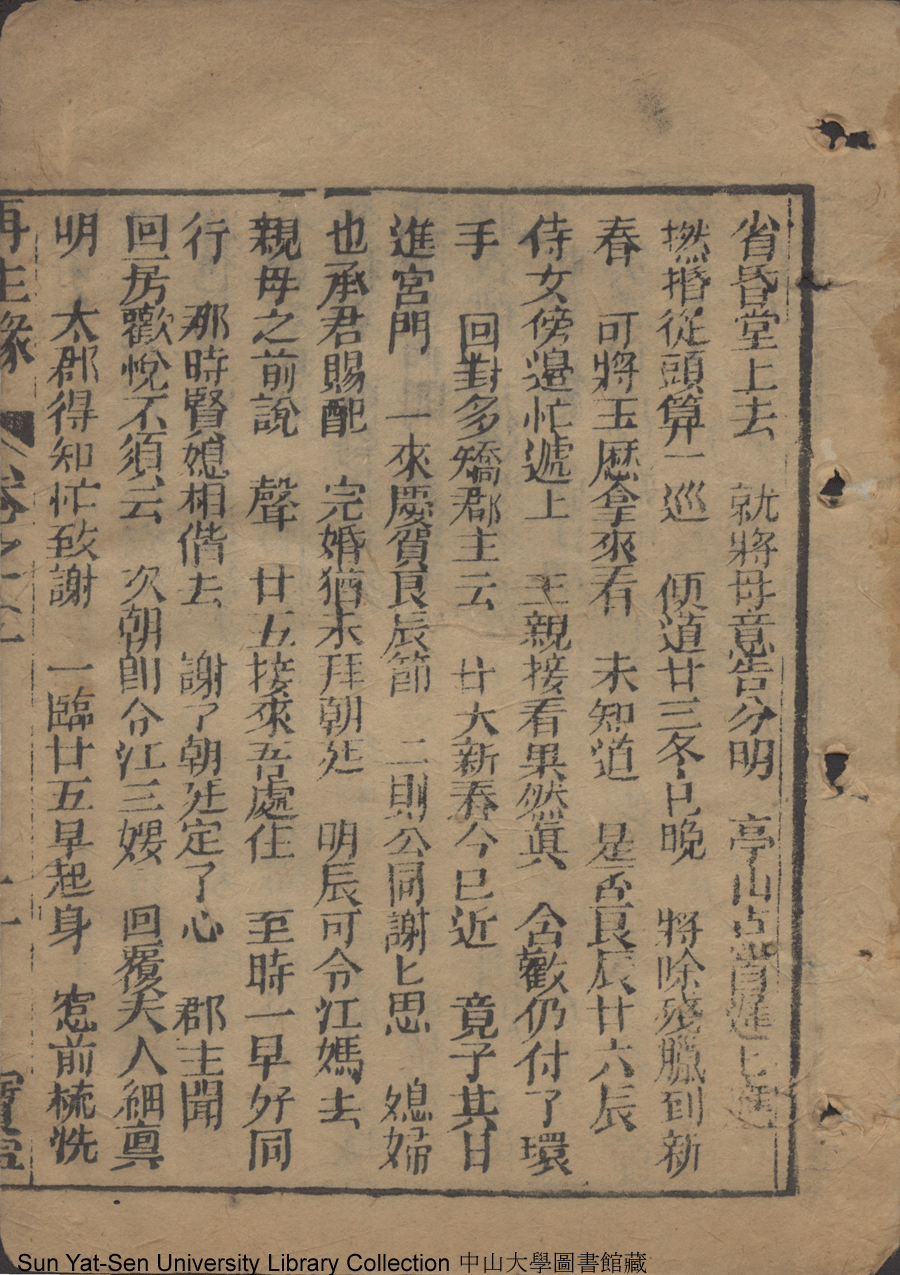 省昏堂上去　就將母意告分明　亭山点首道
撚搢從頭算一巡　便道廿三冬已晚　將除殘臘到新
春　可將玉厯拿來看　未知道　是否艮辰廿六辰
侍女傍邉忙遞上　王親接看果然眞　含歡仍付了環
手　回對多嬌郡主云　廿大新春今已近　竟子其日
進宮門　一來慶賀艮辰節　二則公同謝匕恩　媳婦
也承君賜配　完婚猶未拜朝廷　明辰可令江媽去
親母之前說　聲　廿五接來吾處住　至時一早好同
行　那時賢媳相偕去　謝了朝廷定了心　郡主聞
回房歡悅不須云　次朝卽令江三嫂　回覆夫人細禀
明　太郡得知忙致謝　一臨廿五早起身　窓前梳洗
再生緣　卷之十二　十一　寶寧
Sun Yat-Sen University Library Collection 中山大學圖書館藏